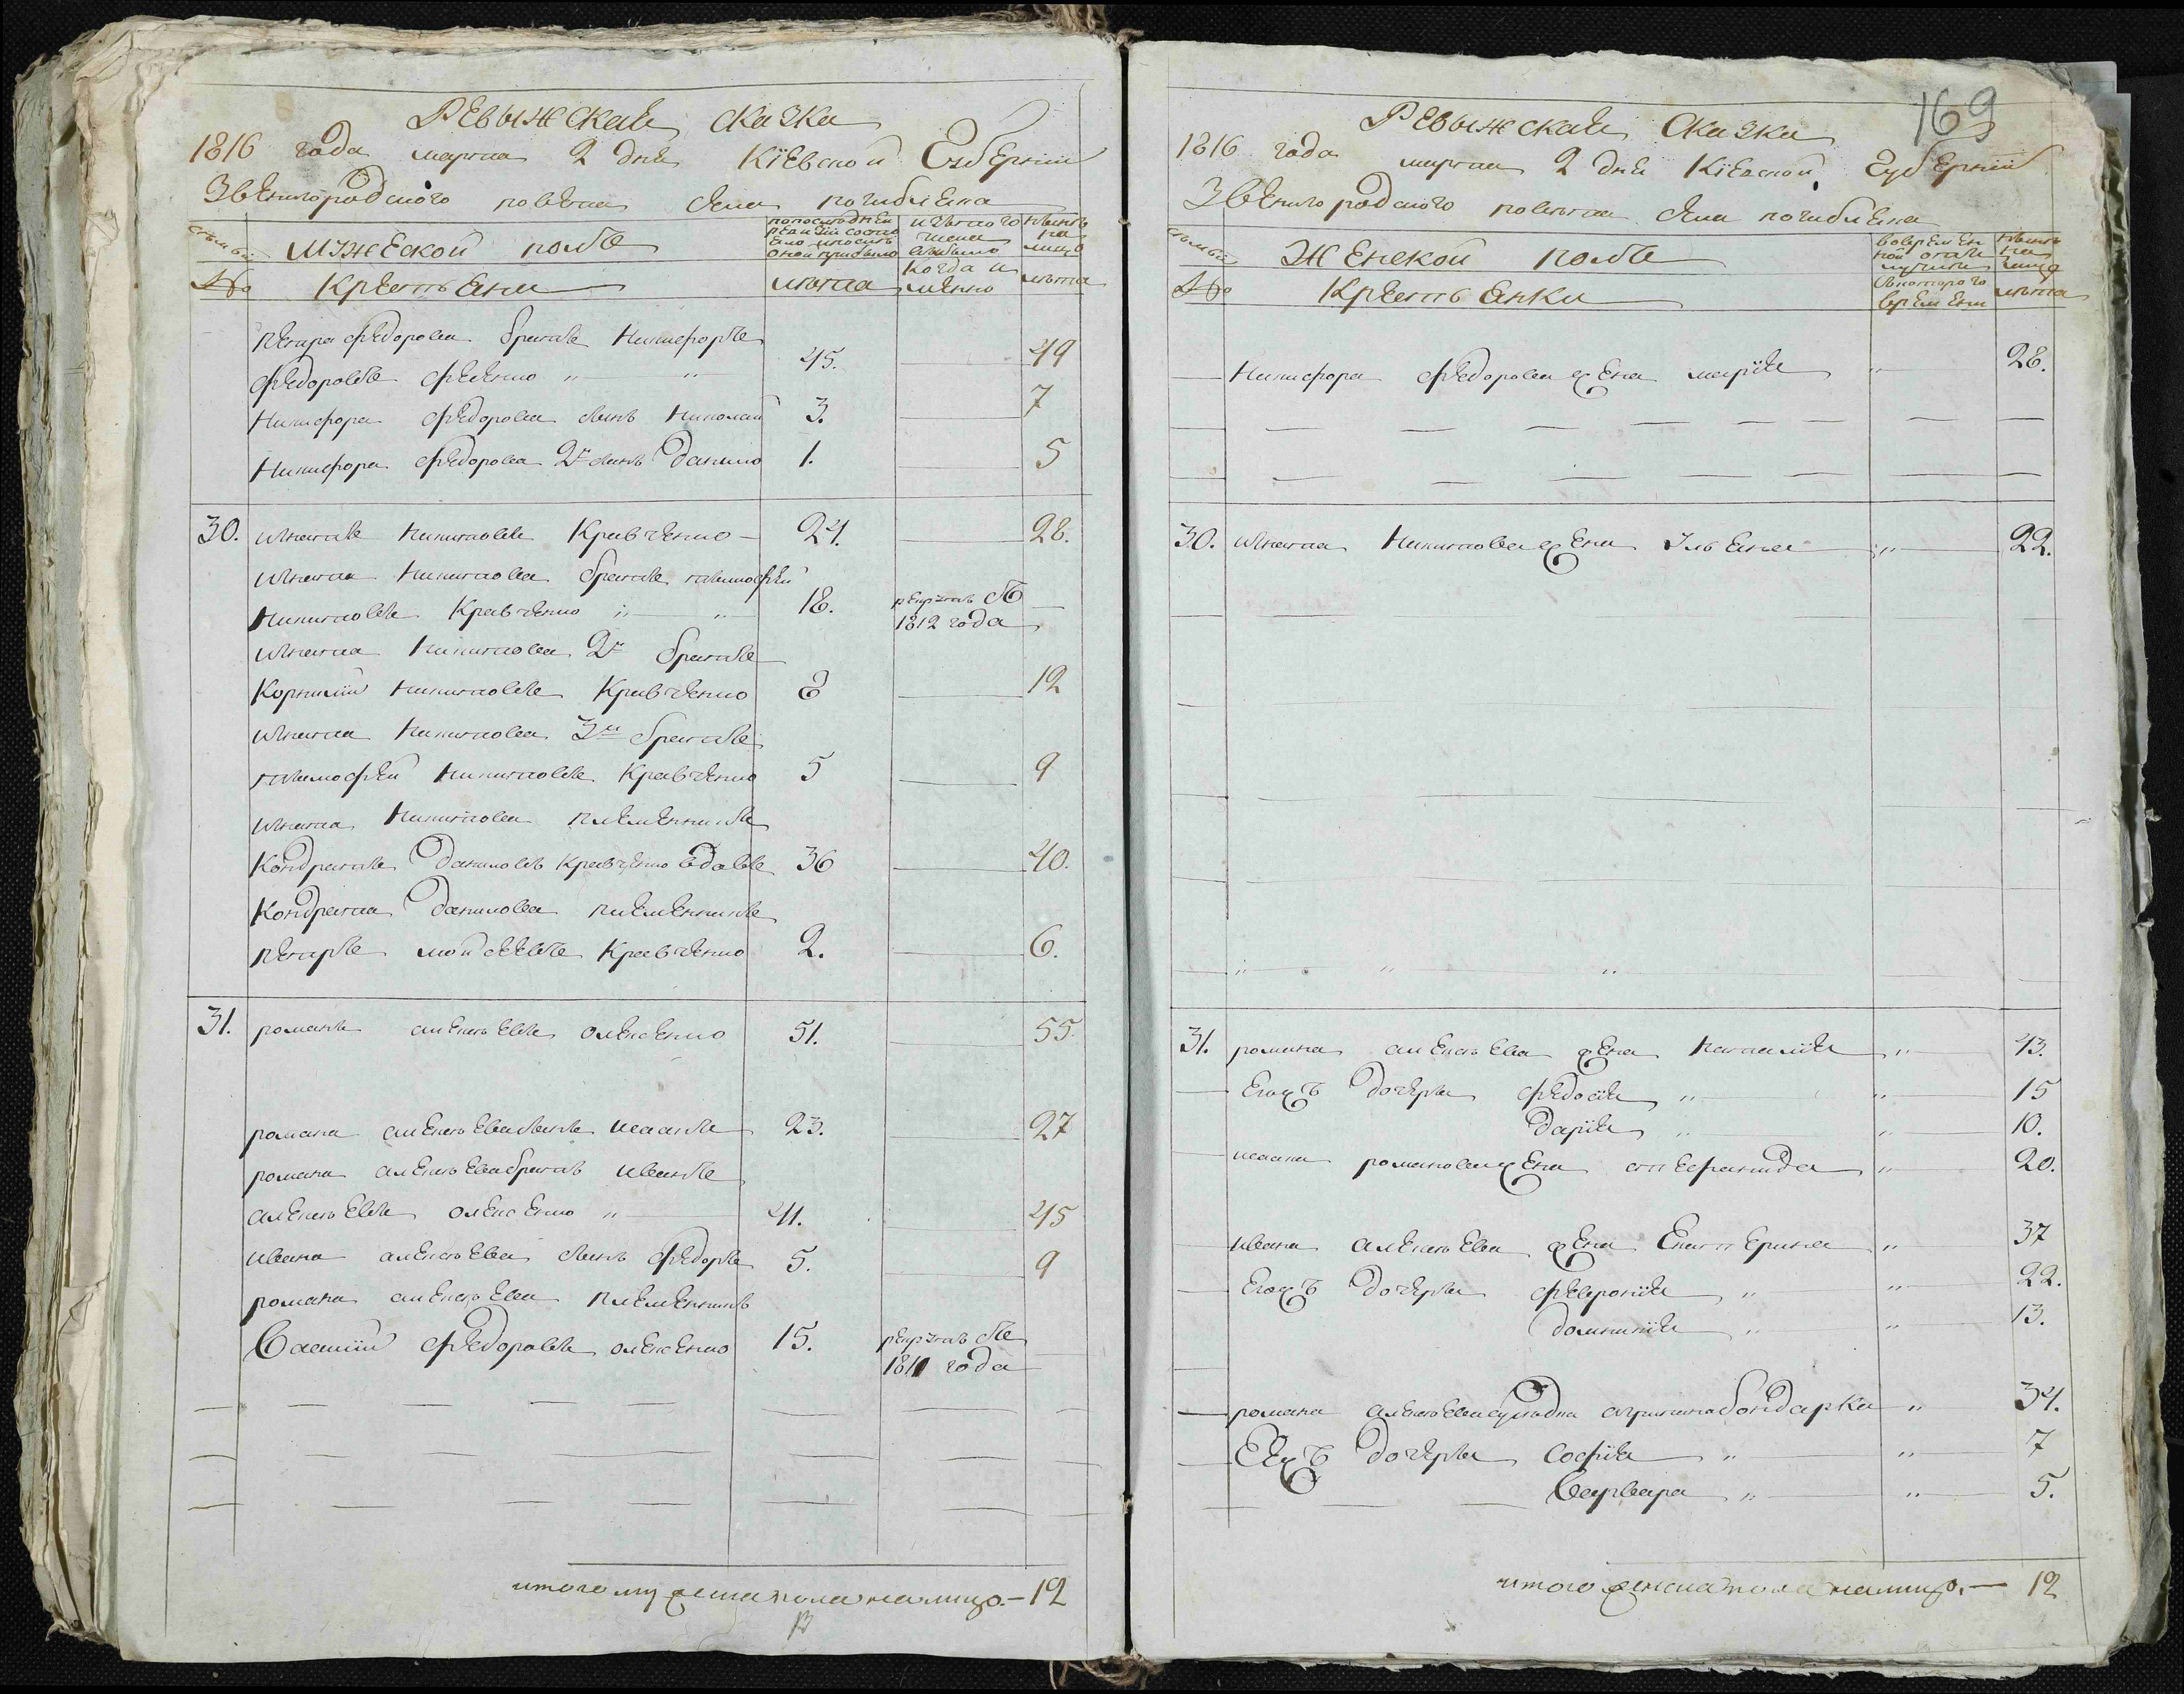 Ревыжская сказка
1816 года марта 2 дня Кіевской Губерніи
Звенигородского повѣта села погибляка
семьи
Мужеской полъ
по последней ревизіи состояло и после оной прибыло
изътого числа выбыло
Нынѣ на лицо
№
Крестьяни
лѣта
когда именно
лѣта
петра федорова братъ Никифоръ
федоровъ феденко „ „ 45. 49
Никифора федорова сынъ Николай 3. 7
Никифора федорова 2й сынъ Данило 1. 5
30. игнатъ Никитовъ Кравченко 24. 28.
игната Никитова братъ тимофей
Никитовъ Кравченко „ „ 18. рекрутъ съ
1812 года
игната Никитова 2й братъ
Корнилій Никитовъ Кравченко 8 12
игната Никитова 3й братъ
тимофей Никитовъ Кравченко 5 9
игната Никитова племенникъ
Кондратъ Даниловъ Кравченко вдовъ 36 40.
Кондрата Данилова племенникъ
петръ мойсеевъ Кравченко 2. 6.
31. романъ алексеевъ олексенко 51. 55.
романа алексеева сынъ исаакъ 23. 27
романа алексеева братъ иванъ
алексеевъ олексенко „ 41. 45
ивана алексеева сынъ федоръ 5. 9
романа алексеева племенникъ
Василій федоровъ олексенко 15. рекрутъ съ
1811 года
итого мужеска пола налицо. — 12
169
Ревыжская Сказка
1816 года марта 2 дня Кіевской Губерніи
Звенигородского повѣта села погибляка
семьи
Женской полъ
вовременной отлучки
Нынѣ на лицо
№
Крестьянки
съкоторого времени
лѣта
Никифора федорова жена марія „ 28.
30. игната Никитова жена Ульяна „ 22.
31. романа алексеева жена Наталія „ 43.
Егожъ дочеры федосія „ „ 15
дарія „ „ 10.
исаака романова жена степанида „ 20.
ивана алексеева жена Екатерина „ 37
Егожъ дочеры февронія „ „ 22.
домникія „ „ 13.
романа алексеева бондарка „ 34.
Еяжъ дочеры софія „ „ 7
Варвара „ „ 5.
итого женска пола налицо. — 12